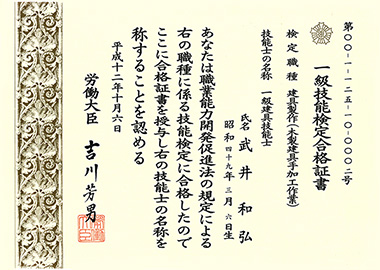 第〇〇-一-一二五-一〇-〇〇〇二号
一級技能検定合格証書
検定職種 建具製作(木製建具手加工作業)
技能士の名称 一級建具技能士
氏名 武井和弘
昭和四十九年三月六日生
あなたは職業能力開発促進法の規定による
右の職種に係る技能検定に合格したので
ここに合格証書を授与し右の技能士の名称を
称することを認める
平成十二年十月六日
労働大臣 吉川芳男